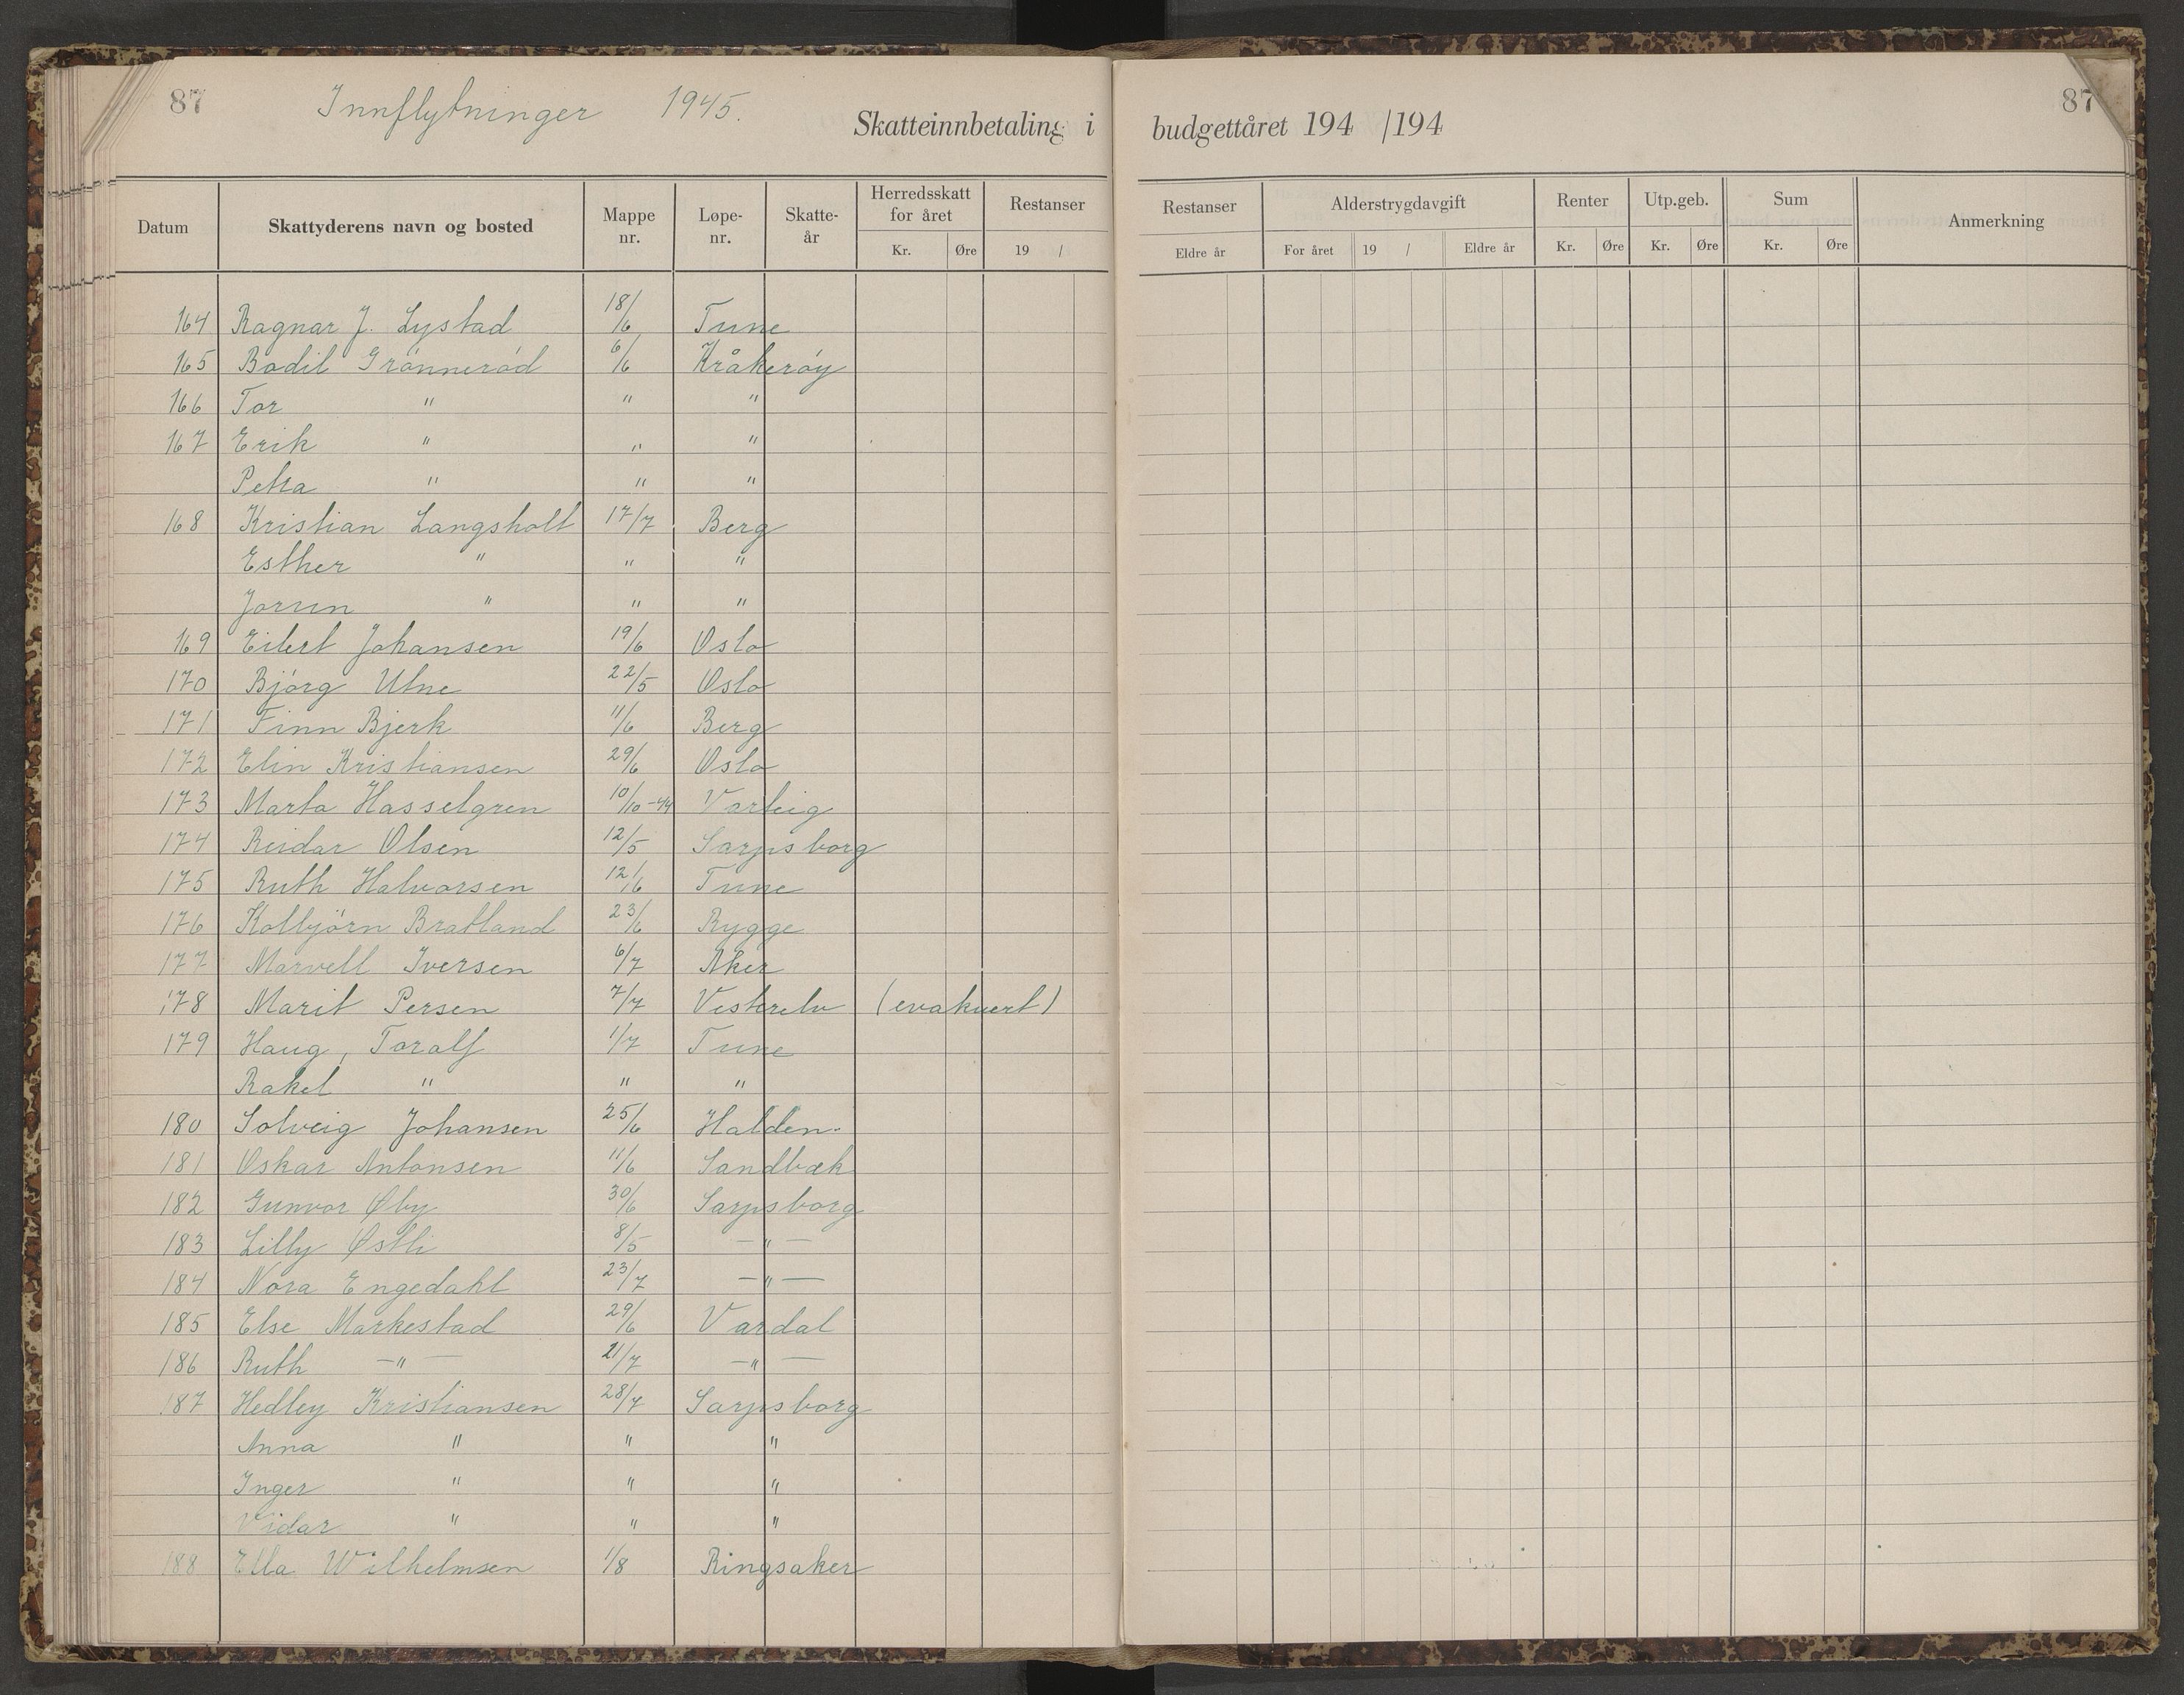 87 Innflytninger 1945.
Skatteinnbetaling i budgettåret 194 /194 87
Datum Skattyderens navn og bosted Mappe nr. Løpe-nr. Skatte-år Herredsskatt for året Kr. Øre Restanser 19 / Restanser Eldre år Alderstrygdavgift For året 19 / Eldre år Renter Kr. Øre Utp.geb. Kr. Øre Sum Kr. Øre Anmerkning
164 Ragnar J. Lystad 18/6 Tune
165 Bodil Grönneröd 6/6 Kråkeröy
166 Tor " " "
167 Erik " " "
Petra " " "
168 Kristian Langsholt 17/7 Berg
Esther " " "
Jorun " " "
169 Eilert Johansen 19/6 Oslo
170 Björg Utne 22/5 Oslo
171 Finn Bjerk 11/6 Berg
172 Elin Kristiansen 29/6 Oslo
173 Marta Hasselgren 10/10-44 Varteig
174 Reidar Olsen 12/5 Sarpsborg
175 Ruth Halvorsen 12/6 Tune
176 Kolbjörn Bratland 23/6 Rygge
177 Marvell Iversen 6/7 Aker
178 Marit Persen 7/7 Vestrelv (evakuert)
179 Haug, Toralf 1/7 Tune
Rakel " " "
180 Solveig Johansen 25/6 Halden.
181 Oskar Antonsen 11/6 Sandbæk
182 Gunvor Øby 30/6 Sarpsborg
183 Lilly Østli 8/5 — " —
184 Nora Engedahl 23/7 — " —
185 Else Markestad 29/6 Vardal
186 Ruth — " — 21/7 — " —
187 Hedley Kristiansen 28/7 Sarpsborg
Anna " " "
Inger " " "
Vidar " " "
188 Ella Wilhelmsen 1/8 Ringsaker